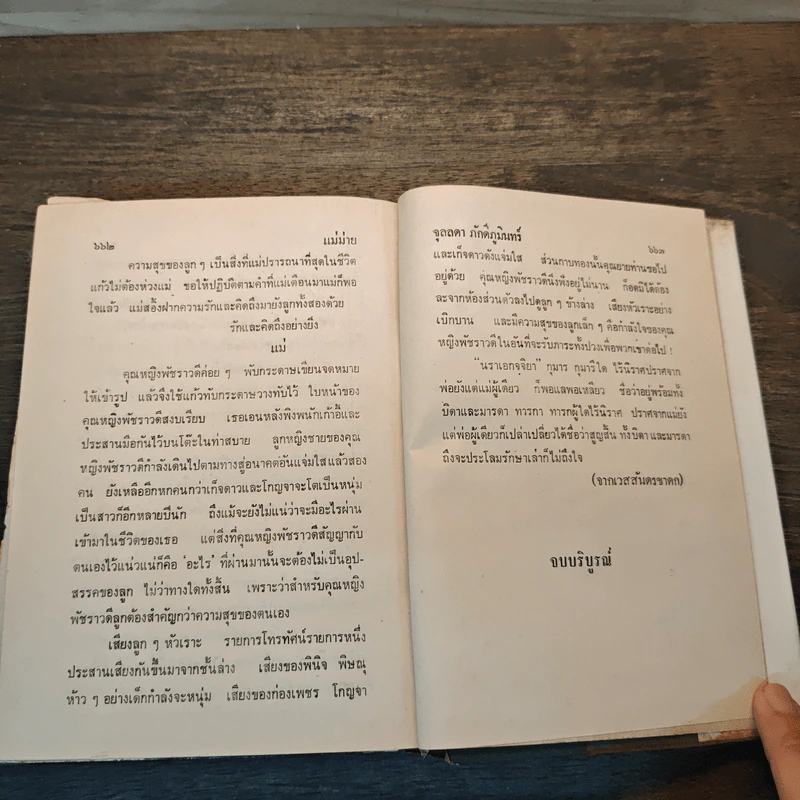 ๖๖๒ แม่ม่าย
ความสุขของลูก ๆ เป็นสิ่งที่แม่ปรารถนาที่สุดในชีวิต
แก้วไม่ต้องห่วงแม่ ขอให้ปฏิบัติตามคำที่แม่เตือนมาแม่ก็พอ
ใจแล้ว แม่สั่งฝากความรักและคิดถึงมายังลูกทั้งสองด้วย
รักและคิดถึงอย่างยิ่ง
แม่
คุณหญิงพัชราวดีค่อย ๆ พับกระดาษเขียนจดหมาย
ให้เข้ารูป แล้วจึงใช้แก้วทับกระดาษวางทับไว้ ใบหน้าของ
คุณหญิงพัชราวดีสงบเรียบ เธอเอนหลังพิงพนักเก้าอี้และ
ประสานมือกันไว้บนโต๊ะในท่าสบาย ลูกหญิงชายของคุณ
หญิงพัชราวดีกำลังเดินไปตามทางสู่อนาคตอันแจ่มใสแล้วสอง
คน ยังเหลืออีกหกคนกว่าเก็จดาวและโกญจาจะโตเป็นหนุ่ม
เป็นสาวก็อีกหลายปีนัก ถึงแม้จะยังไม่แน่ว่าจะมีอะไรผ่าน
เข้ามาในชีวิตของเธอ แต่สิ่งที่คุณหญิงพัชราวดีสัญญากับ
ตนเองไว้แน่วแน่ก็คือ 'อะไร' ที่ผ่านมานั้นจะต้องไม่เป็นอุป-
สรรคของลูก ไม่ว่าทางใดทั้งสิ้น เพราะว่าสำหรับคุณหญิง
พัชราวดีลูกต้องสำคัญกว่าความสุขของตนเอง
เสียงลูก ๆ หัวเราะ รายการโทรทัศน์รายการหนึ่ง
ประสานเสียงกันขึ้นมาจากชั้นล่าง เสียงของพินิจ พิษณุ
ห้าว ๆ อย่างเด็กกำลังจะหนุ่ม เสียงของก่องเพชร โกญจา
จุลลดา ภักดีภูมินทร์ ๖๖๓
และเก็จดาวดังแจ่มใส ส่วนกาบทองนั้นคุณยายท่านขอไป
อยู่ด้วย คุณหญิงพัชราวดีนั่งฟังอยู่ไม่นาน ก็อดมิได้ต้อง
ละจากห้องส่วนตัวลงไปดูลูก ๆ ข้างล่าง เสียงหัวเราะอย่าง
เบิกบาน และมีความสุขของลูกเล็ก ๆ คือกำลังใจของคุณ
หญิงพัชราวดีในอันที่จะรับภาระทั้งปวงเพื่อพวกเขาต่อไป !
"นราเอกจจิยา" กุมาร กุมารีใด ไร้นิราศปราศจาก
พ่อยังแต่แม่ผู้เดียว ก็พอแลพอเหลียว ชื่อว่าอยู่พร้อมทั้ง
บิดาและมารดา ทารกา ทารกผู้ใดไร้นิราศ ปราศจากแม่ยัง
แต่พ่อผู้เดียวก็เปล่าเปลี่ยวได้ชื่อว่าสูญสิ้น ทั้งบิดาและมารดา
ถึงจะประโลมรักษาเล่าก็ไม่ถึงใจ
(จากเวสสันดรชาดก)
จบบริบูรณ์